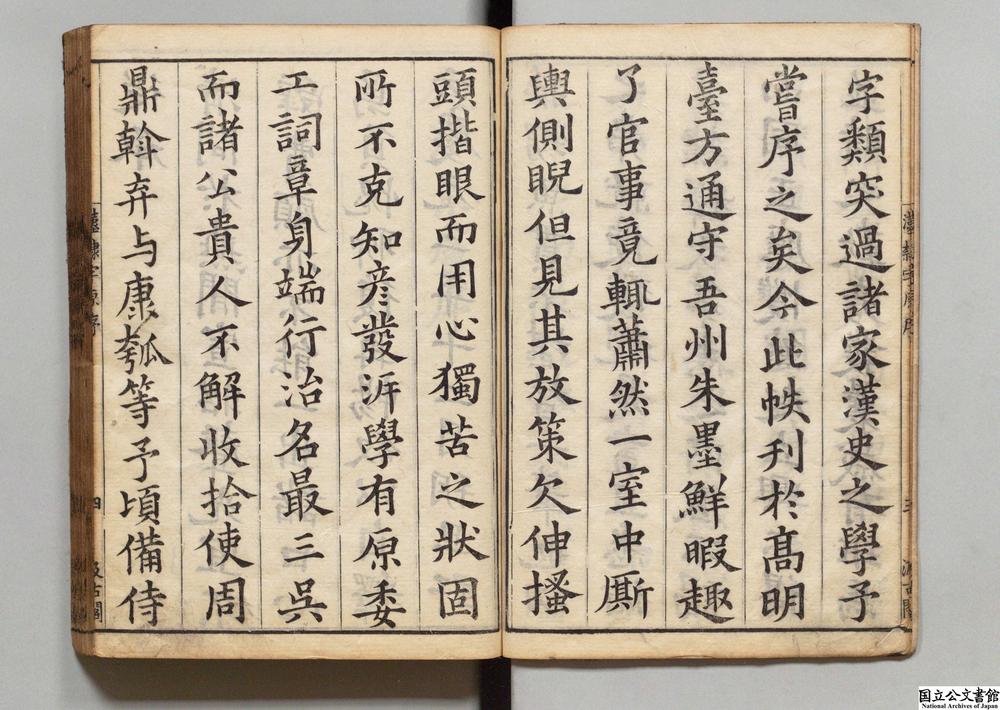 字類突過諸家漢史之學予
嘗序之矣今此帙刊於髙明
臺方通守吾州朱墨鮮暇趣
了官事竟輒蕭然一室中厮
輿側睨但見其放策欠伸搔
頭揩眼而用心獨苦之狀固
所不克知彦發泝學有原委
工詞章身端行治名最三吳
而諸公貴人不解收拾使周
鼎斡弃与康瓠等予頃備侍
漢隷字原序
四
汲古閣
国立公文書館
National Archives of Japan